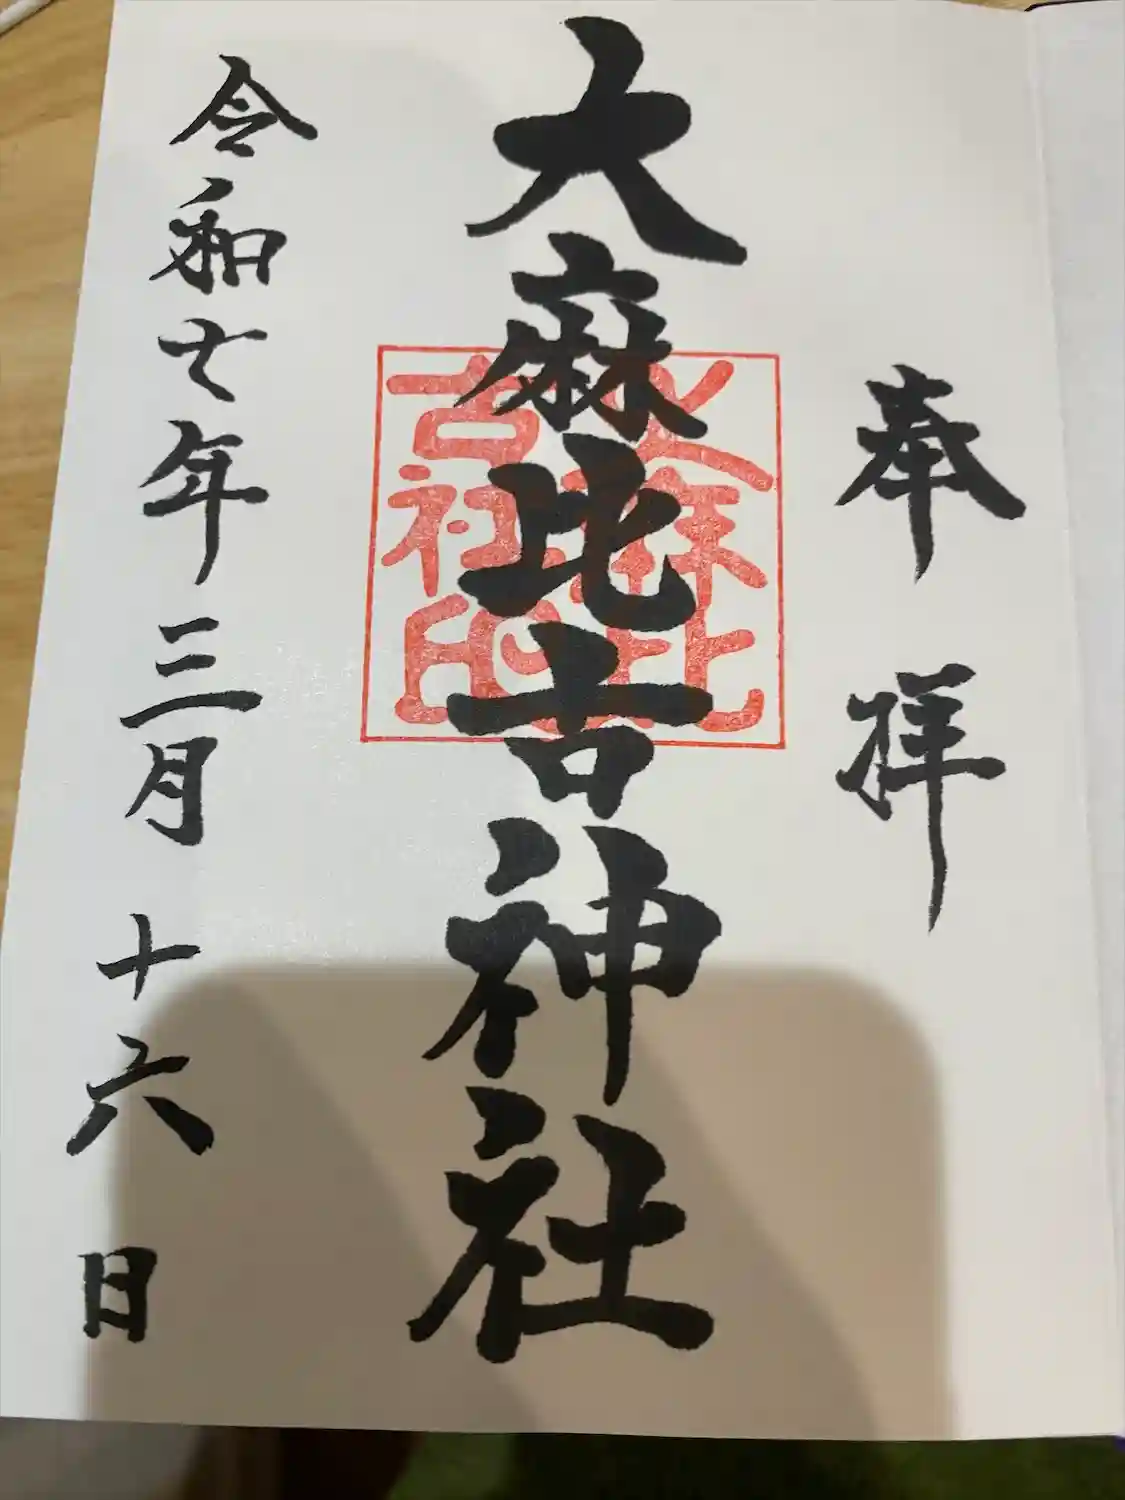 奉拝
大麻比古神社
大麻比古社印
令和七年三月十六日